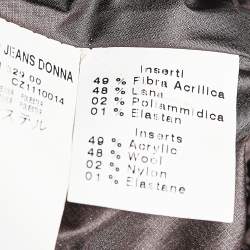 JEANS DONNA
29.00
CZ1110014
ステル
Inserti
49 % Fibra Acrilica
48 % Lana
02 % Poliammidica
01 % Elastan
Inserts
49 % Acrylic
48 % Wool
02 % Nylon
01 % Elastane